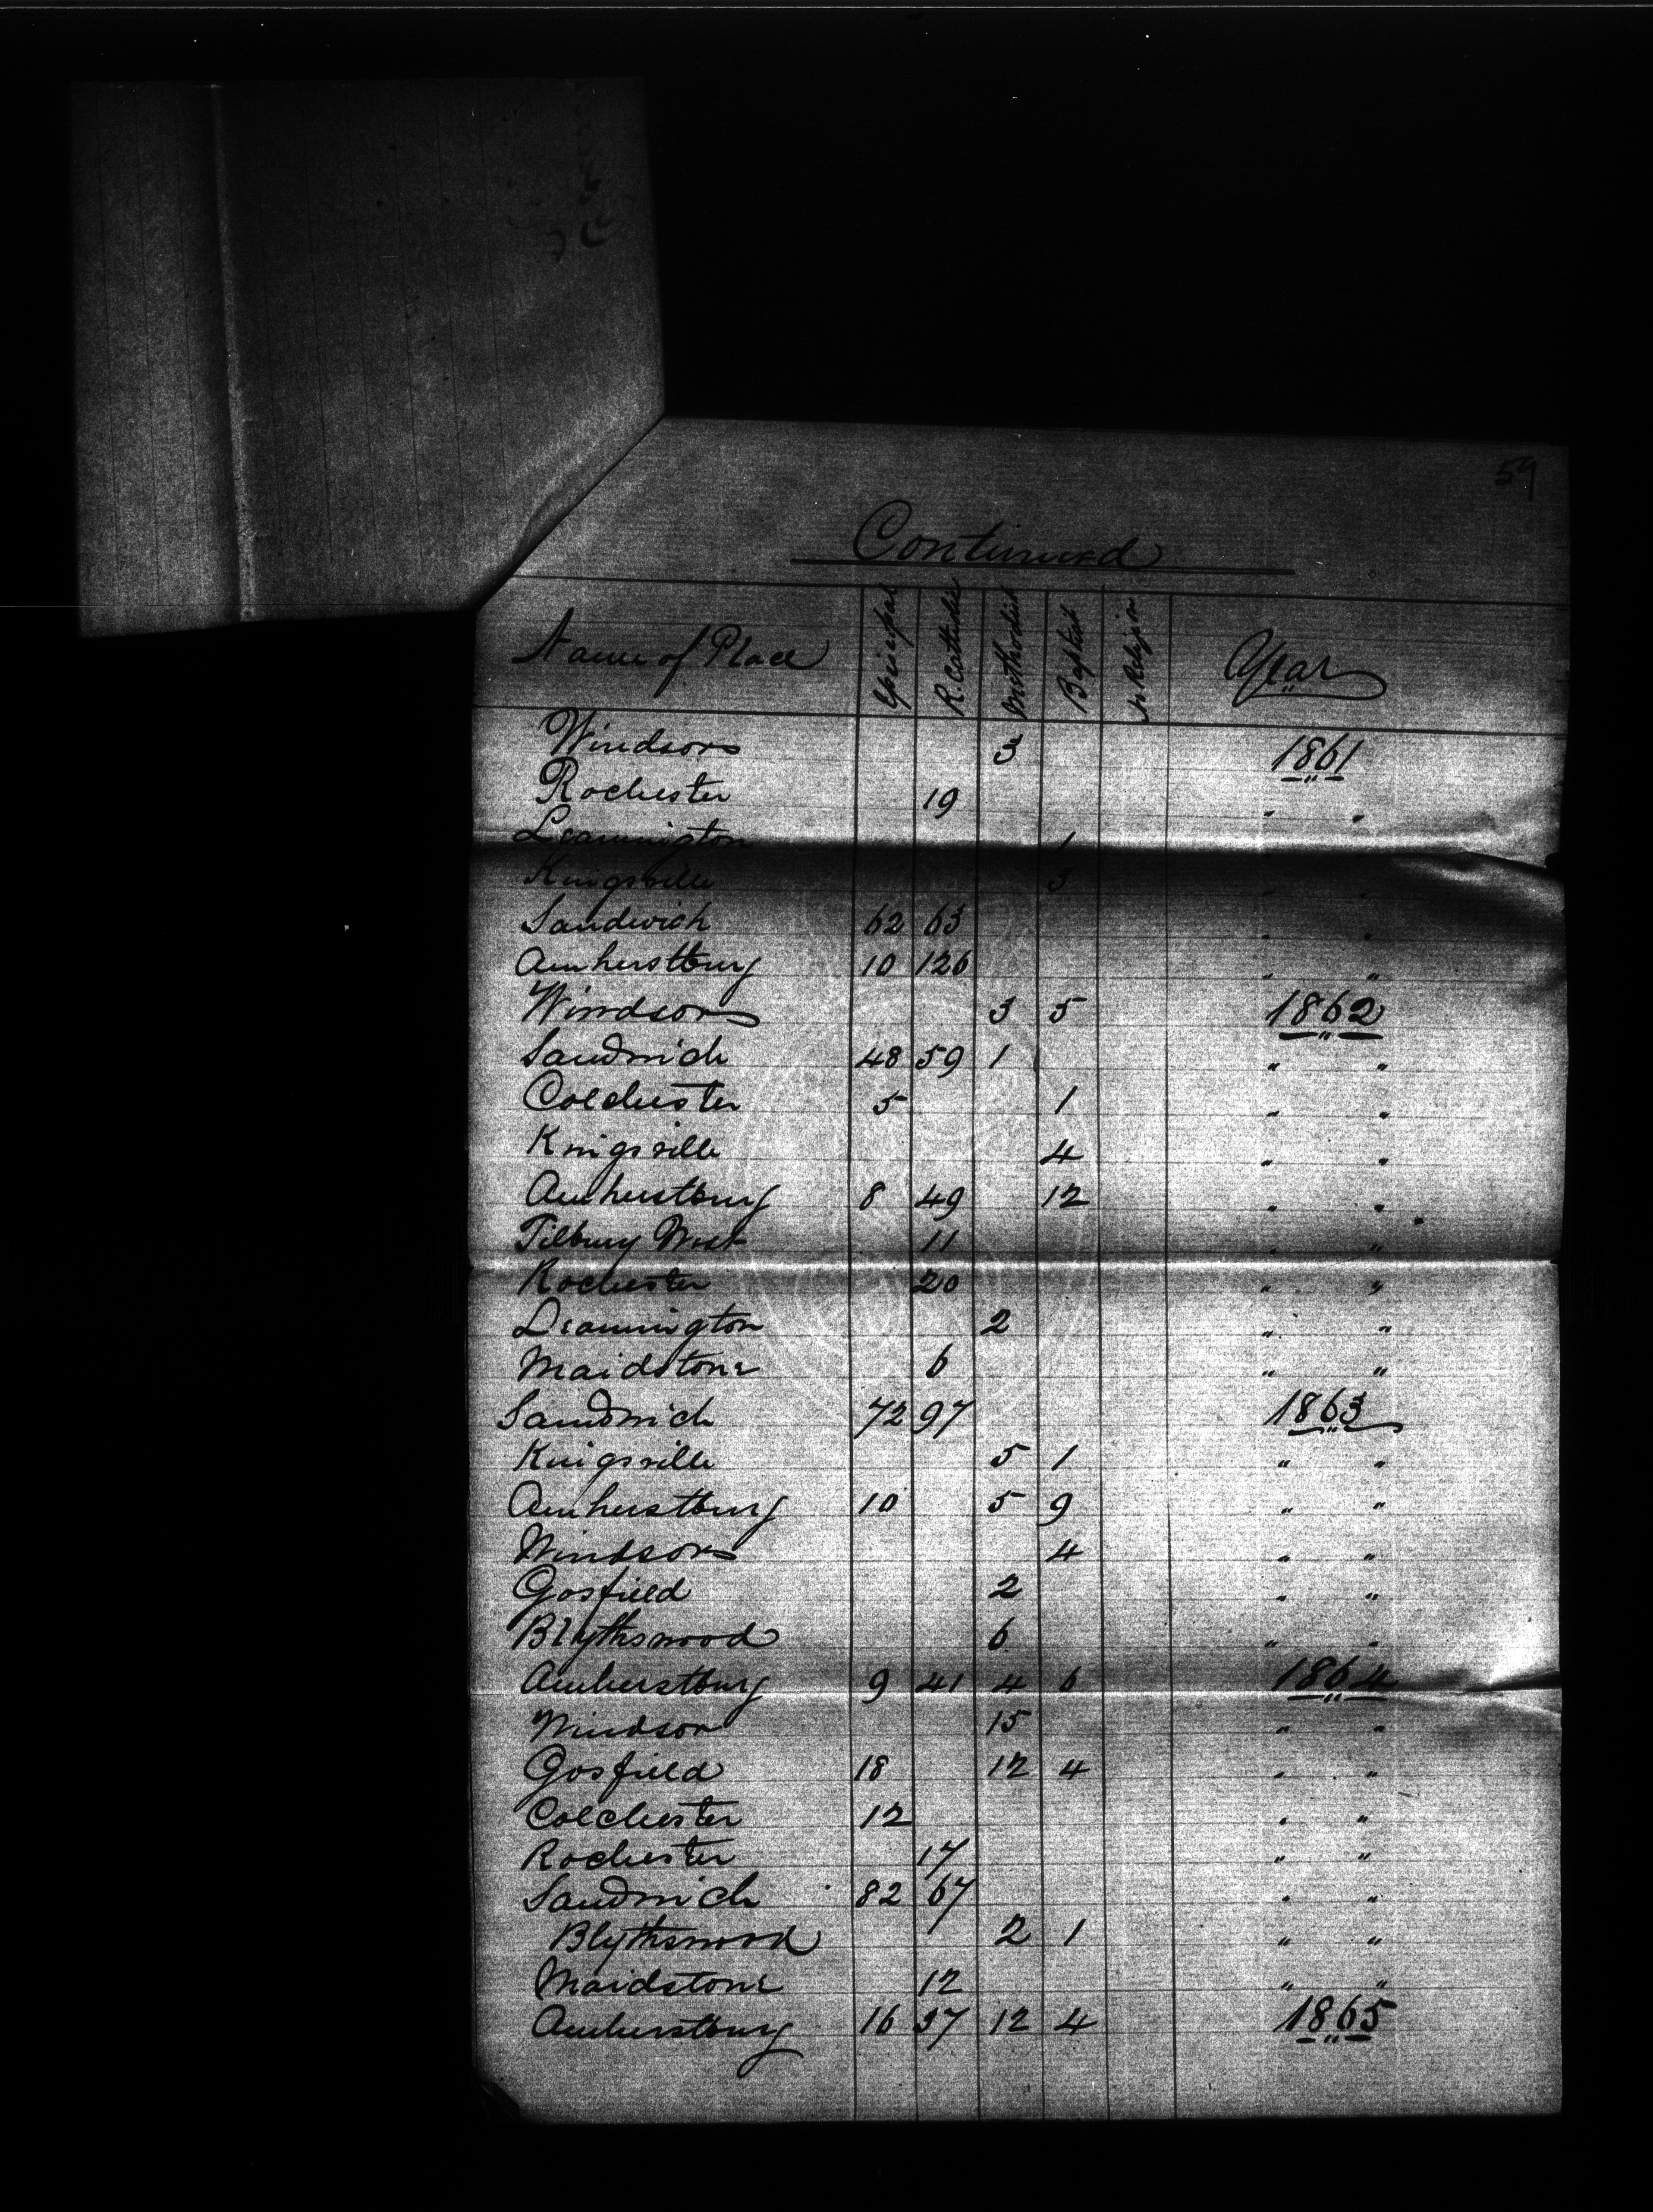 59
Continued
Name of Place Episcopal R. Catholic Methodist Baptist No Religion Year
Windsor 3 1861
Rochester 19 " "
Leamington 1
Kingsville 3 " "
Sandwich 62 63 " "
Amherstburg 10 126 " "
Windsor 3 5 1862
Sandwich 48 59 1 " "
Colchester 5 1 " "
Kingsville 4 " "
Amherstburg 8 49 12 " "
Tilbury West 11 " "
Rochester 20 " "
Leamington 2 " "
Maidstone 6 " "
Sandwich 72 97 1863
Kingsville 5 1 " "
Amherstburg 10 5 9 " "
Windsor 4 " "
Gosfield 2 " "
Blythswood 6 " "
Amherstburg 9 41 4 6 1864
Windsor 15 " "
Gosfield 18 12 4 " "
Colchester 12 " "
Rochester 17 " "
Sandwich 82 67 " "
Blythswood 2 1 " "
Maidstone 12 " "
Amherstburg 16 37 12 4 1865